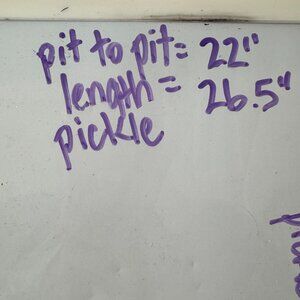 pit to pit = 22"
length = 26.5"
pickle